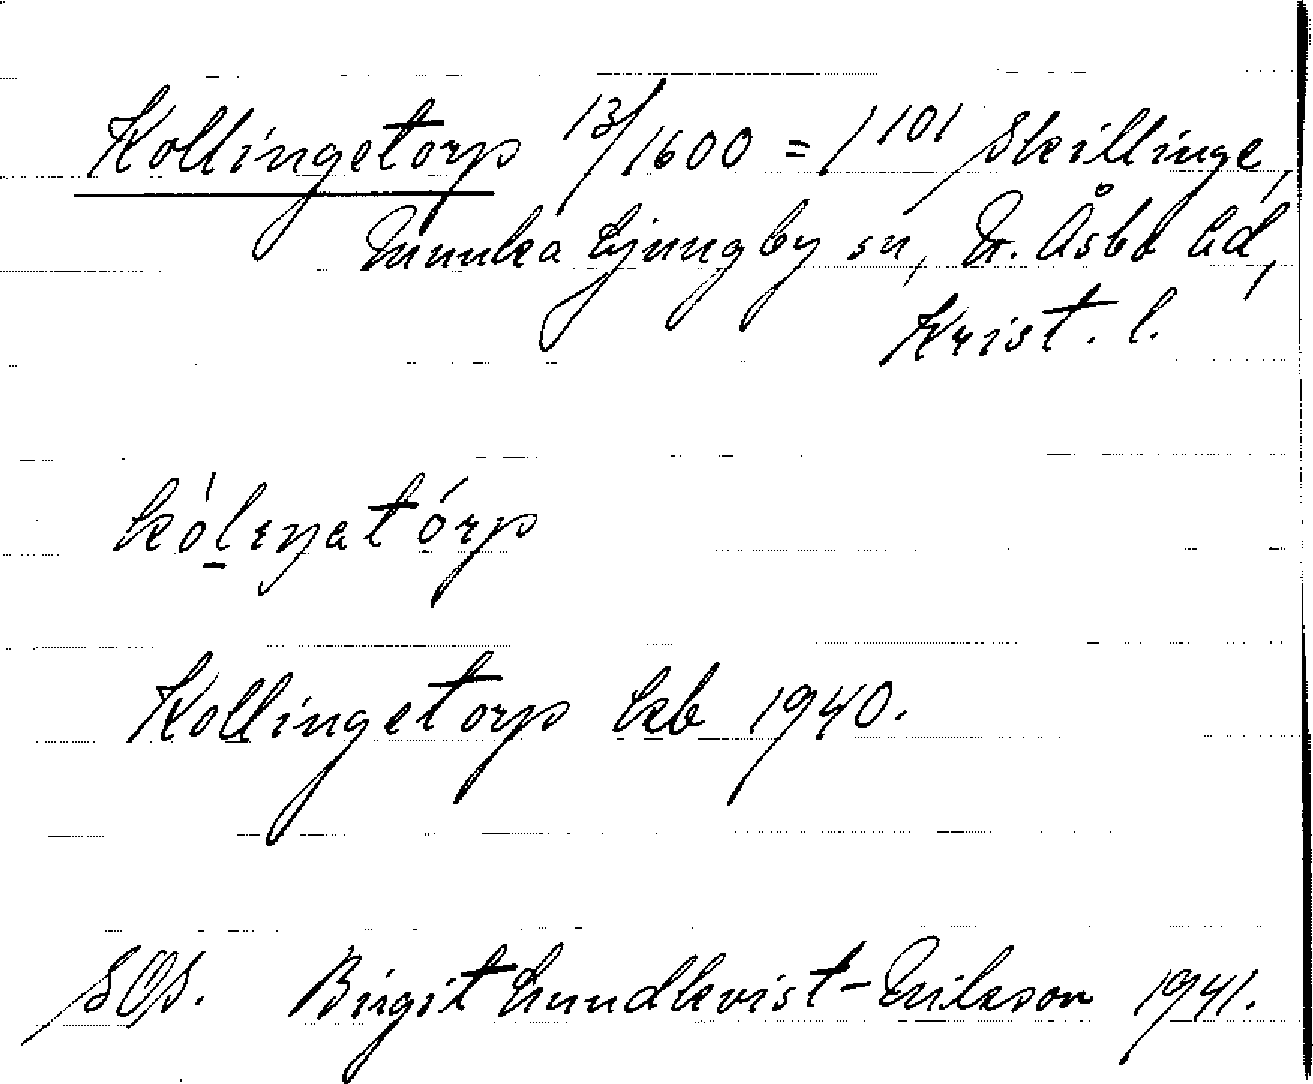 Kollingetorp 13/1600 = 1^101 Skillinge,
Munka Ljungby sn, N. Åsbo hd,
Krist. l.
kólıŋatórp
Kollingetorp kb 1940.
SOS. Birgit Lundkvist-Nilsson 1941.